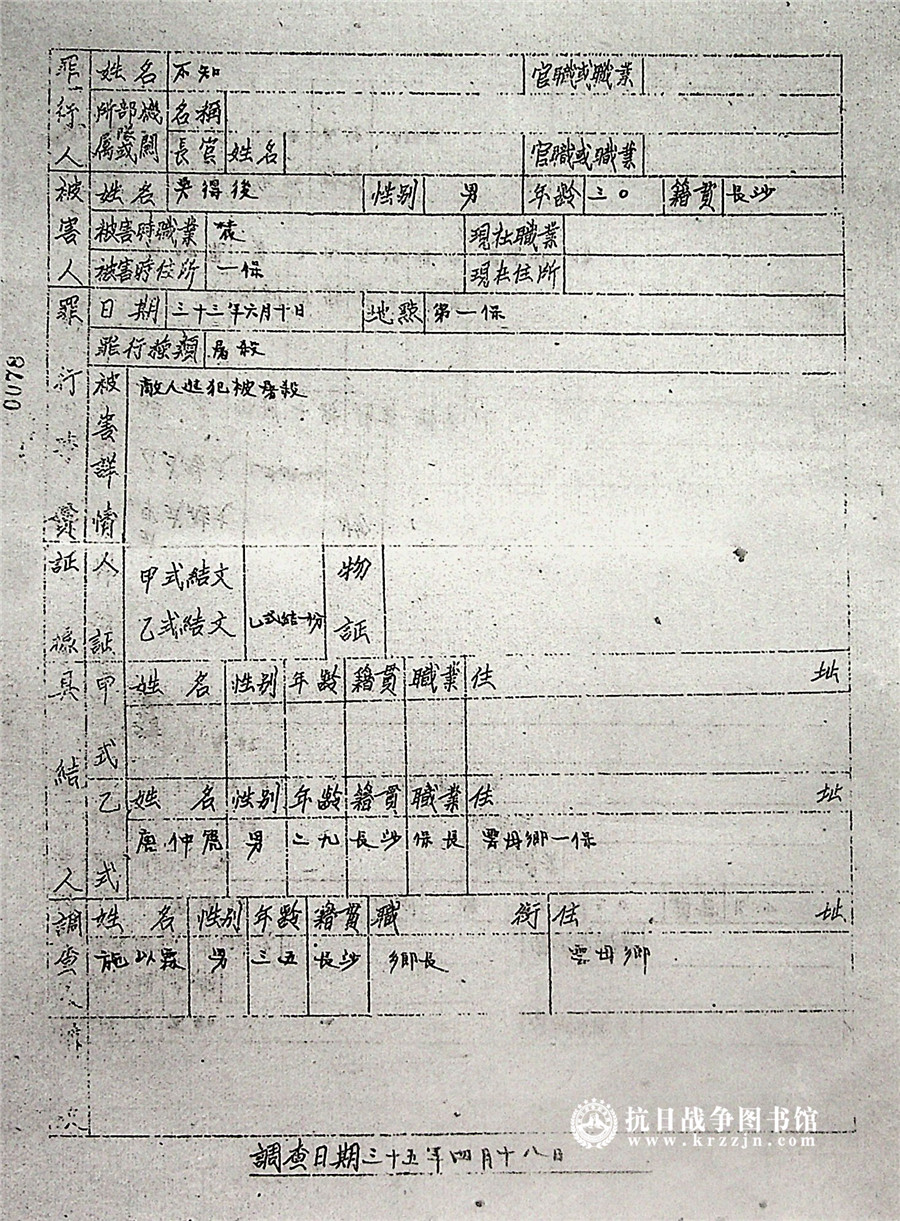 罪行人 姓名 不知 官職或職業
所屬部隊或機關 名稱
長官 姓名 官職或職業
被害人 姓名 吳得後 性别 男 年龄 三〇 籍貫 長沙
被害時職業 農 現在職業
被害時住所 一保 現在住所
罪行事實 日期 三十三年六月十日 地點 第一保
罪行種類 屠殺
被害詳情 敵人進犯被屠殺
証據 人証 甲式結文 物証
乙式結文 乙式結一份
具結人 甲式 姓名 性别 年龄 籍貫 職業 住址
乙式 姓名 性别 年龄 籍貫 職業 住址
唐仲 男 二九 長沙 保長 雲母鄉一保
調查人 姓名 性别 年龄 籍貫 職銜 住址
施以 男 三五 長沙 鄉長 雲母鄉
調查日期 三十五年四月十八日
0078
抗日战争图书馆
www.krzzjn.com